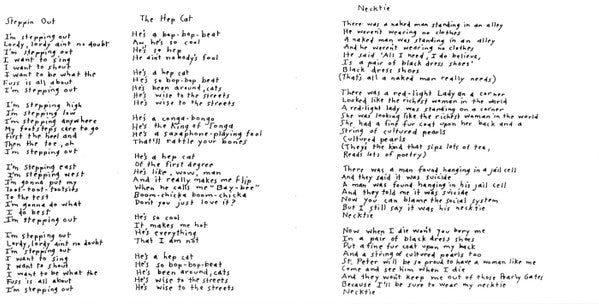 Steppin Out
I'm stepping out
Lordy, lordy aint no doubt
I'm stepping out
I want to sing
I want to shout
I want to be what the
Fuss is all about
I'm stepping out
I'm stepping high
Im stepping low
I'm stepping anywhere
My footsteps care to go
First the heel and
Then the toe, oh
I'm stepping out
I'm stepping east
I'm stepping west
I'm gonna put my
Toot-toot-tootsies
To the test
I'm gonna do what
I do best
I'm stepping out
I'm stepping out
Lordy, lordy aint no doubt
I'm stepping out
I want to sing
I want to shout
I want to be what the
Fuss is all about
I'm stepping out
The Hep Cat
He's a bop-bop-beat
Aw, he's so cool
He's so hep
He aint nobody's fool
He's a hep cat
He's so bop-bop-beat
He's been around, cats
He's wise to the streets
He's wise to the streets
He's a conga-bongo
He's the King of Tonga
He's a saxaphone-playing fool
That'll rattle your bones
He's a hep cat
Of the first degree
He's like, wow, man
And it really makes me flip
When he calls me "Bay-bee"
Boom-chicka boom-chicka
Don't you just love it?
He's so cool
It makes me hot
He's everything
That I am not
He's a hep cat
He's so bop-bop-beat
He's been around, cats
He's wise to the streets
He's wise to the streets
Necktie
There was a naked man standing in an alley
He weren't wearing no clothes
A naked man was standing in an alley
And he weren't wearing no clothes
He said 'All I need, I do believe,
Is a pair of black dress shoes'
Black dress shoes
(That's all a naked man really needs)
There was a red-light Lady on a corner
Looked like the richest woman in the world
A red-light lady was standing on a corner
She was looking like the richest woman in the world
She had a fine fur coat upon her back and a
String of cultured pearls
Cultured pearls
(They's the kind that sips lots of tea,
Reads lots of poetry)
There was a man found hanging in a jail cell
And they said it was suicide
A man was found hanging in his jail cell
And they told me it was suicide
Now you can blame the social system
But I still say it was his necktie
Necktie
Now when I die won't you bury me
In a pair of black dress shoes
Put a fine fur coat upon my back
And a string of cultured pearls too
St. Peter will be so proud to have a woman like me
Come and see him when I die
And they won't keep me out of those Pearly Gates
Because I'll be sure to wear my necktie
Necktie